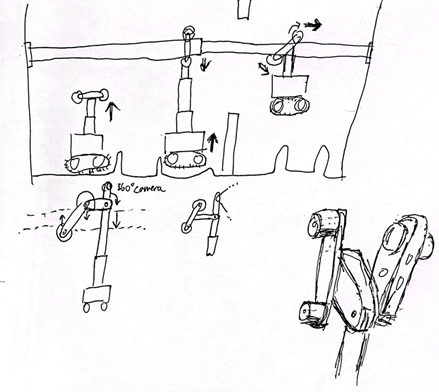 360° camera